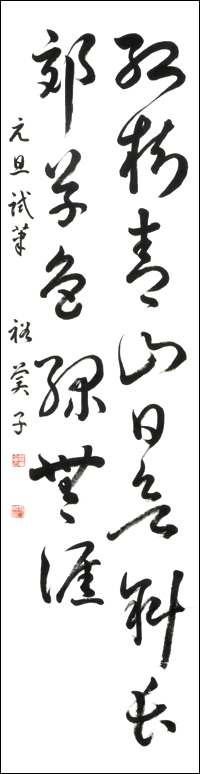 紅樹青山日欲斜長
郊草色緑無涯
元旦試筆 裕美子